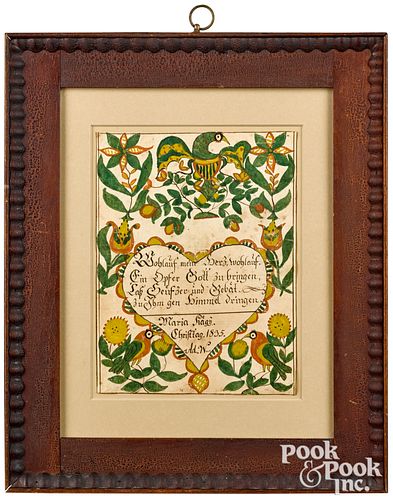 Wohlauf mein Herz, wohlauf,
Ein Opfer Gott zu bringen,
Laß Seufzer und Gebät.
zu Ihm gen Himmel dringen.
Maria
Christtag. 1835.
Ad. W.
POOK
& POOK
INC.